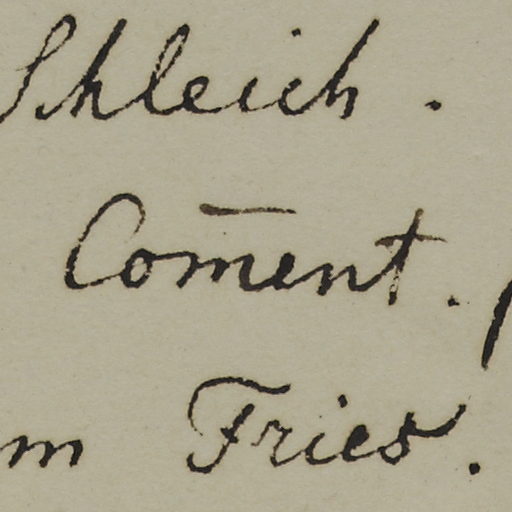 Schleich.
Com̄ent.
m Fries.